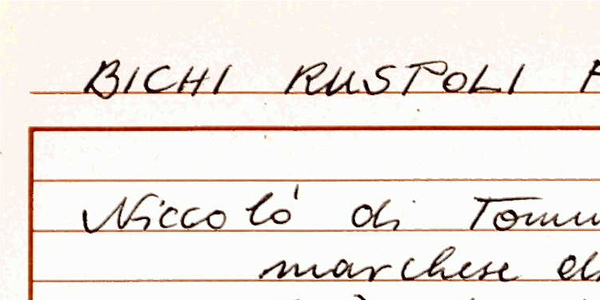 BICHI RUSPOLI
Niccolò di
marchese